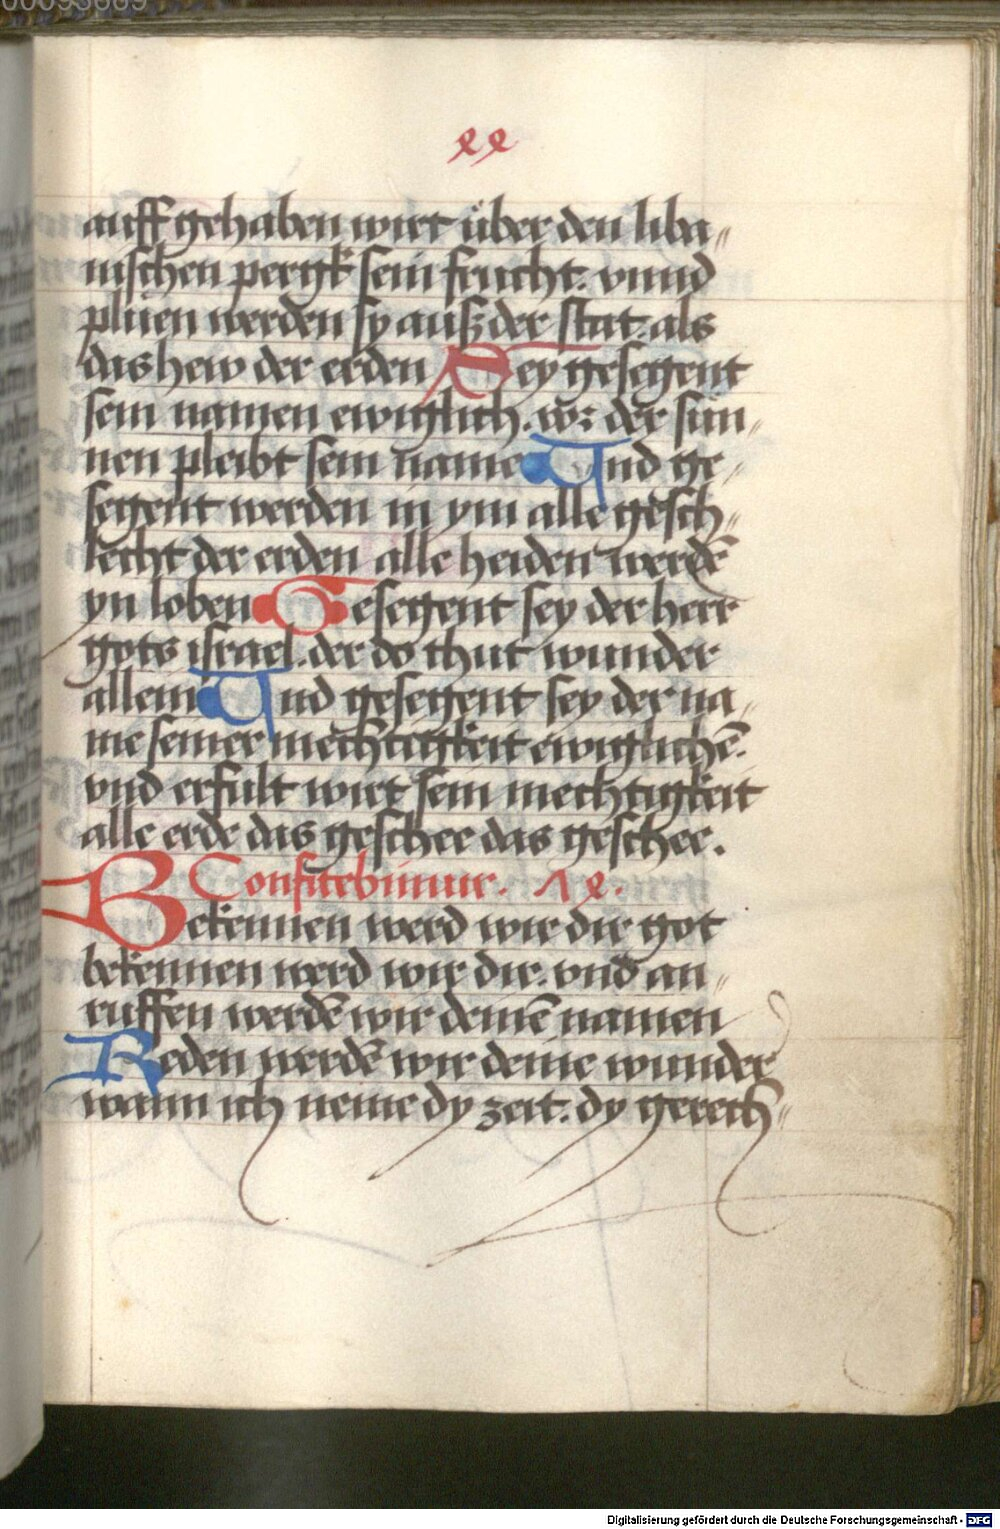 00093889
xx
auff gehaben wirt über den liba〃
nischen pergk sein frucht. vnnd
plüen werden sy auß der stat. als
das hew der erden Sey gesegent
sein namen ewiglich. vor der sun〃
nen pleibt sein name Und ge〃
segent werden in ym alle gesch〃
lecht der erden alle heiden werdē
yn loben Gesegent sey der herr
gots israel. der do thut wunder
allein Und gesegent sey der na〃
me seiner mechtigkeit ewiglichē.
vnd erfult wirt sein mechtigkeit
alle erde das geschee das geschee.
Confitebimur.
Bekennen werd wir dir got
bekennen werd wir dir. vnd an〃
ruffen werdē wir deinē namen
Reden werdē wir deine wunder
wann ich neme dy zeit. dy gerech〃
Digitalisierung gefördert durch die Deutsche Forschungsgemeinschaft - DFG